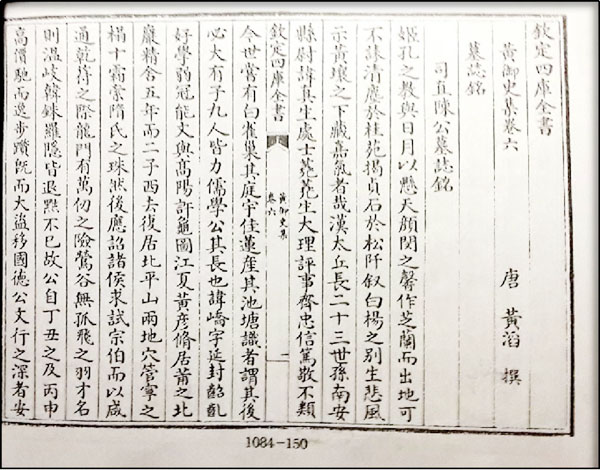 欽定四庫全書
黃御史集卷六
唐 黃滔 撰
墓誌銘
司直陳公墓誌銘
姬孔之教與日月以懸天顔閔之馨作芝蘭而出地可
不誄清塵於桂苑揭貞石於松阡叙白楊之别生悲風
示黃壤之下藏嘉氣者哉漢太丘長二十三世孫南安
縣尉諱真生處士生大理評事齊忠信篤敬不類
欽定四庫全書
黃御史集
卷六
二
今世嘗有白雀巢其庭宇佳蓮產其池塘識者謂其後
必大有子九人皆力儒學公其長也諱嶠字延封齠齓
好學弱冠能文與高陽許龜圖江夏黃彦脩居莆之北
巖精舍五年而二子西去復居北平山兩地穴管寧之
榻十霜索隋氏之珠然後應詔諸侯求試宗伯而以咸
通乾符之際龍門有萬仞之險鶯谷無孤飛之羽才名
則温岐韓銖羅隱皆退黙不已故公自丁丑之及丙申
高價馳而逸步躓旣而大盗移國德公文行之深者安
1084-150